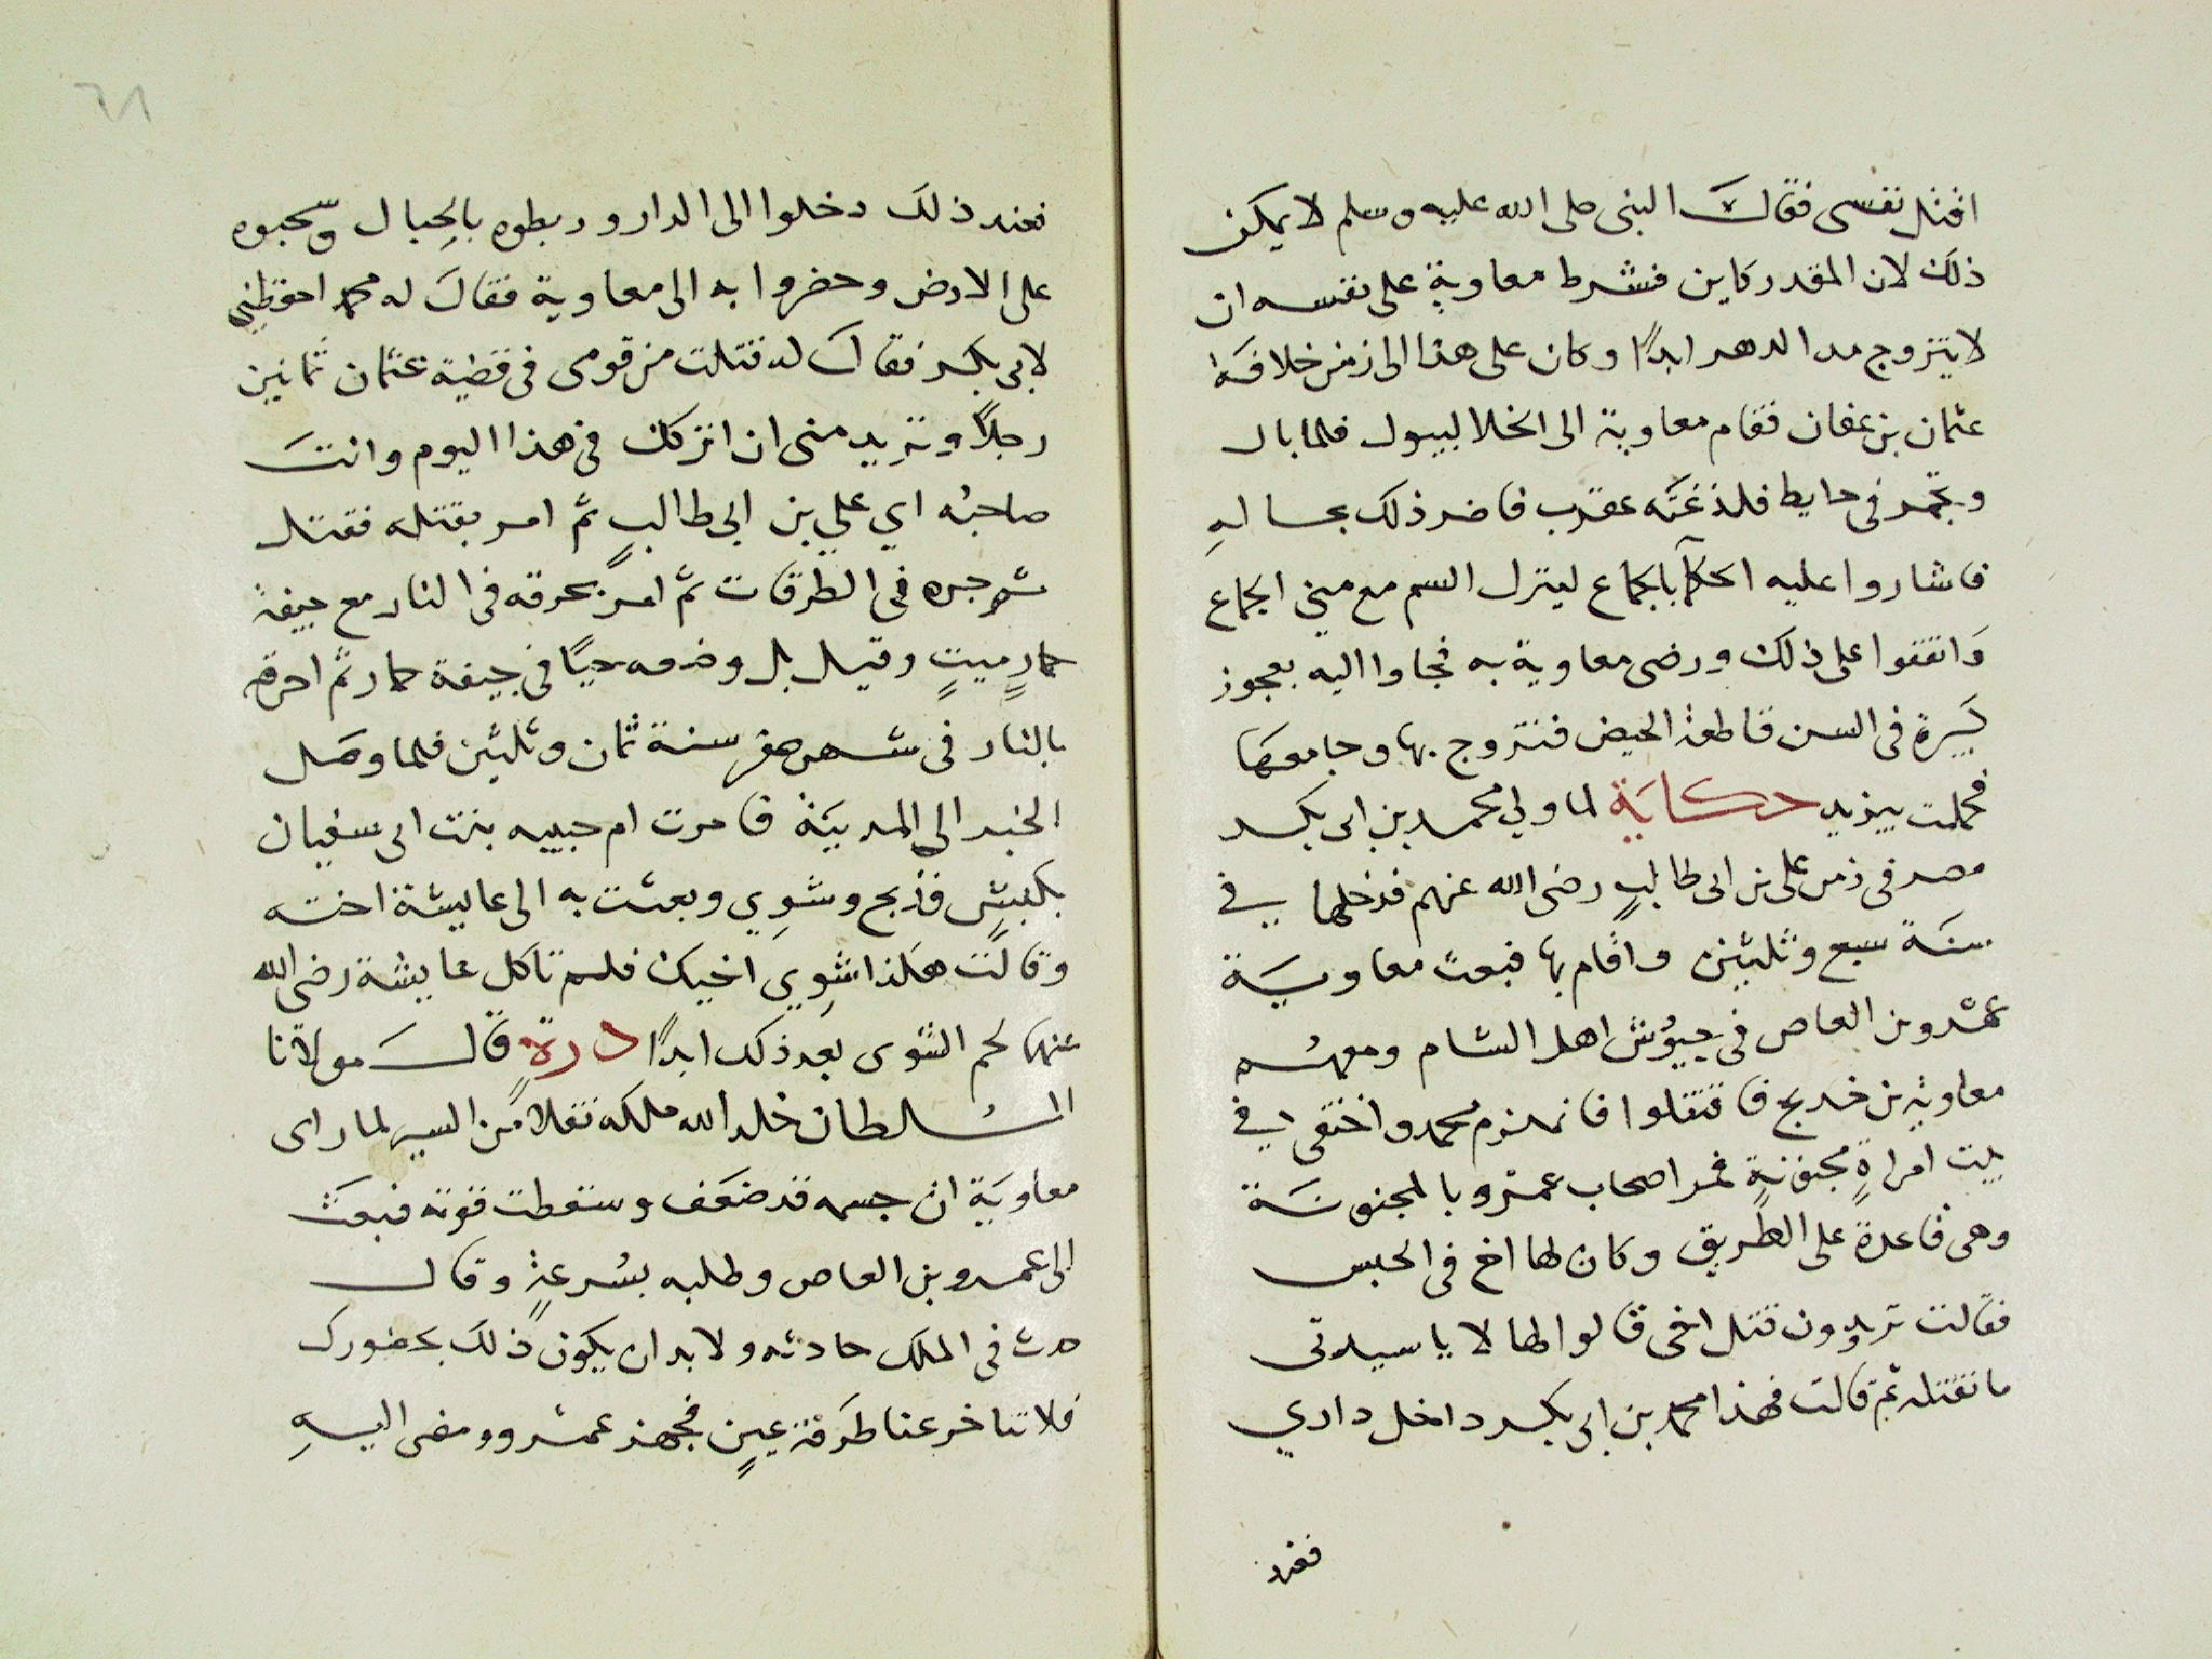 اقتل نفسى فقالَ النبى صلى الله عليه وسلم لا يمكن
ذلك لان المقدر كاين فشرط معاوية على نفسه ان
لا يتزوج مدا الدهر ابدًا وكان على هذا الى زمن خلافة
عثمان بن عفان فقام معاوية الى الخلا ليبول فلما بال
وتجمر فى حايط فلدغته عقرب فاضر ذلك بحاله
فاشاروا عليه الحكمآ بالجماع لينزل السم مع منيّ الجماع
وَاتفقوا على ذلك ورضى معاوية به فجاوا اليه بعجوز
كبيرة فى السن قاطعة الحيض فتزوج بها وجامعها
فحملت بيزيد حكاية لما ولي محمد بن ابى بكر
مصر فى زمن على بن ابى طالبٍ رضى الله عنهم فدخلها في
سنة سبع وثلثين واقام بها فبعث معاوية
عمرو بن العاص فى جيوش اهل الشام ومعهم
معاوية بن خديج فاقتتلوا فانهزم محمد واختفى في
بيت امراةٍ مجنونةٍ فمر اصحاب عمرو بالمجنونة
وهى قاعدةً على الطريق وكان لها اخ فى الحبس
فقالت تريدون قتل اخى قالوا لها لا يا سيدتى
ما نقتله ثم قالت فهذا محمد بن ابى بكر داخل داري
فعند
٦٨
فعند ذلك دخلوا الى الدار وربطوه بالحِبال وسحبوه
على الارض وحضروا به الى معاوية فقالَ له محمد احفظنى
لابى بكر فقالَ له قتلت من قومى فى قضية عثمان ثمانين
رجلاً وتريد منى ان اتركك فى هذا اليوم وانتَ
صاحبُه اي علي بن ابى طالبٍ ثم امر بقتله فقتل
ثم جره فى الطرقات ثم امر بحرقه فى النار مع جيفة
حمارٍ ميتٍ وقيل بل وضعه حيًا فى جيفة حمار ثم احرقه
بالنار فى شهر صفر سنة ثمان وثلثين فلما وصَل
الخبر الى المدينة فامرت ام حبيبه بنت ابى سفيان
بكبشٍ فذبح وشوِي وبعثت به الى عايشة اخته
وقالت هكذا شوِي اخيك فلم تاكل عايشة رضى الله
عنها لحم الشوى بعد ذلك ابدًا درةٍ قالَ مولانا
السلطان خلد الله ملكه نقلاً من السير لما راى
معاويَة ان جسمه قد ضعَف وسقطت قوته فبعَث
الى عمرو بن العاص وطلبه بسُرعةٍ وقال
حدث فى الملك حادثه ولا بد ان يكون ذلكَ بحضورك
فلا تتاخر عنا طَرفة عينٍ فجهز عمرو ومضى اليهِ